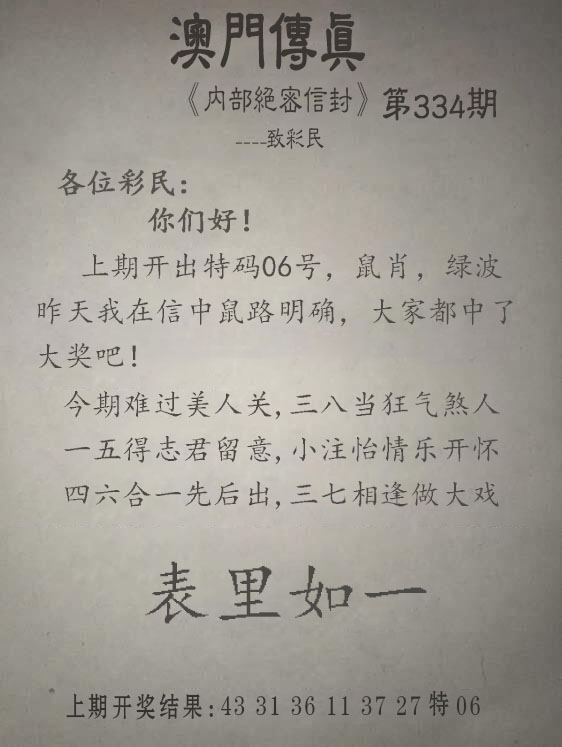 澳門傳真
《内部絕密信封》第334期
----致彩民
各位彩民:
你们好!
上期开出特码06号，鼠肖，绿波
昨天我在信中鼠路明确，大家都中了
大奖吧!
今期难过美人关,三八当狂气煞人
一五得志君留意,小注怡情乐开怀
四六合一先后出,三七相逢做大戏
表里如一
上期开奖结果:43 31 36 11 37 27 特 06